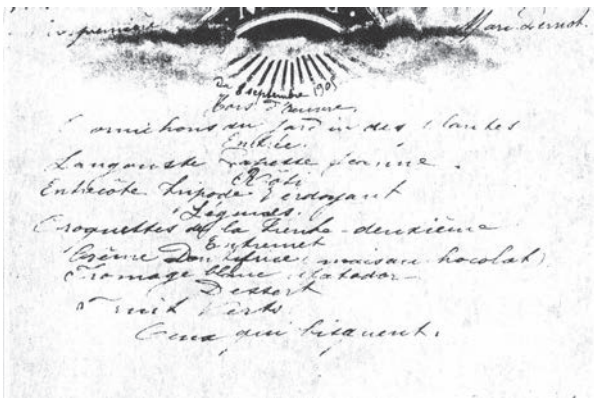 première
du 8 septembre 1905
Hors d'œuvre.
Cornichons du Jardin des Plantes
Entrée.
Langouste Papesse Jeanne.
Rôti
Entrecôte Verdoyant
Légumes.
Croquettes de la Trente-deuxième
Entremet
Crème Dentifrice (maison chocolat)
Fromage blanc Matador
Dessert
Fruit Verts
Ceux qui bisquent.